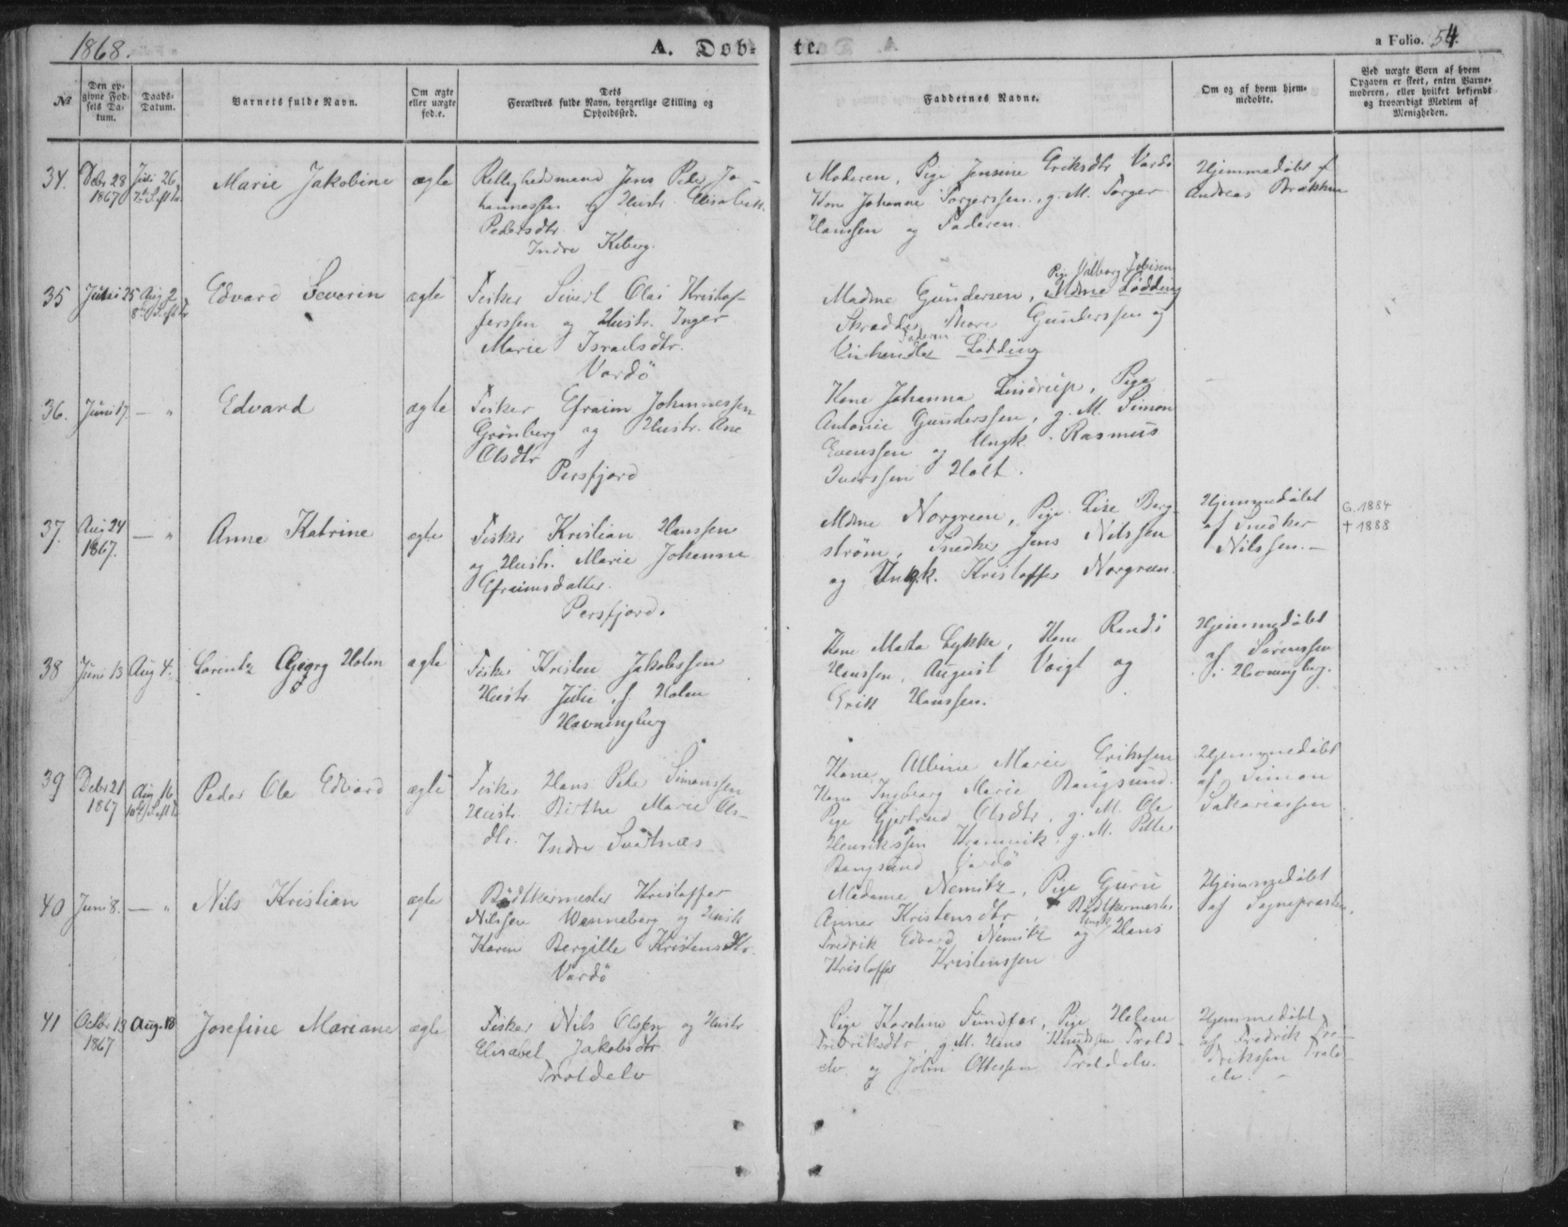 1868.
A. Døbte.
a Folio. 54.
№
Den opgivne Fødsels Datum.
Daabs-Datum.
Barnets fulde Navn.
Om ægte eller uægte fød.e.
Dets Forældres fulde Navn, borgerlige Stilling og Opholdssted.
Faddernes Navne.
Om og af hvem hjemmedøbte.
Ved uægte Børn af hvem Opgaven er skeet, enten Barnemoderen, eller hvilket bekjendt og troværdigt Medlem af Menigheden.
34.
Dcbr 28
1867
Juli 26
Marie Jakobine
ægte
Jens Peder Jo-
hannessen og Hustr. Elisabeth
Pedersdtr
Indre Kiberg.
Moderen, Pige Jensine Eriksdtr Vardø
Kone Johanne Torgerssen, g. M. Torger
Hanssen og Faderen.
Hjemmedøbt af
Andreas Brækken
35
Juli 25
Aug 2
Edvard Severin
ægte
Fisker Sivert Olai Kristof-
ferssen og Hustr. Inger
Marie Israelsdtr.
Vardö
Pige Valborg
Madme Gundersen, Mdme Lødding
Skrædder Thore Gunderssen og
Faderen
Lødding
36.
Juni 17
— "
Edvard
ægte
Fisker Efraim Johannessen
Grönberg og Hustr. Ane
Olsdtr
Persfjord
Kone Johanna Lindrup, Pige
Antonie Gunderssen, g. M. Simon
Evenssen og Ungk. Rasmus
Iverssen Holt.
37.
Aug 24
1867.
— "
Anne Katrine
ægte
Fisker Kristian Hanssen
og Hustr. Marie Johanne
Efraimsdatter.
Persfjord.
Mdme Norgreen, Pige Lise Berg-
ström, Snedker Jens Nilssen
og Ungk. Kristoffer Norgreen.
Hjemmedöbt
af Snedker
Nilssen. —
G. 1884
† 1888
38
Juni 13
Aug 4.
Lorentz Georg Holm
ægte
Fisker Kristen Jakobssen
Hustr Julie f Holm
Havningberg
Kone Marta Lykke, Kone Randi
Hanssen, August Voigt og
Erik Hanssen.
Hjemmedøbt
af Sörenssen
i Havningberg.
39
Dcbr 21
1867
Aug 16
Peder Ole Edvard
ægte
Fisker Hans Peter Simonssen
Hustr Birthe Marie Ols-
dtr. Indre Svartnæs
Kone Albine Marie Erikssen
Kone Ingeborg Marie Bangsund
Pige Gjertrud Olsdtr, g. M. Ole
Henrikssen Kramvik, g. M. Petter
Bangsund Vardö
Hjemmedøbt
af Simon
Sakariassen
40
Juni 8.
— "
Nils Kristian
ægte
Bødkermester Kristoffer
Nilssen Wenneberg og Hustr
Karen Bergitte Kristensdtr.
Vardö
Madame Nemitz, Pige Guru
Anne Kristensdtr, Bødkermester
Fredrik Edvard Nemitz og Ungk Hans
Kristoffer Kristenssen
Hjemmedøbt
af Sognepræsten.
41
Octbr 13
1867
Aug. 18
Josefine Mariane
ægte
Fisker Nils Olssen og Hustr
Elisabet Jakobsdtr
Troldelv
Pige Karoline Sundfær, Pige Helene
Fredriksdtr, g. M. Hans Knudssen Trold-
elv og John Ottessen Troldelv.
Hjemmedøbt
af Fredrik Fre-
drikssen Trold-
elv. —